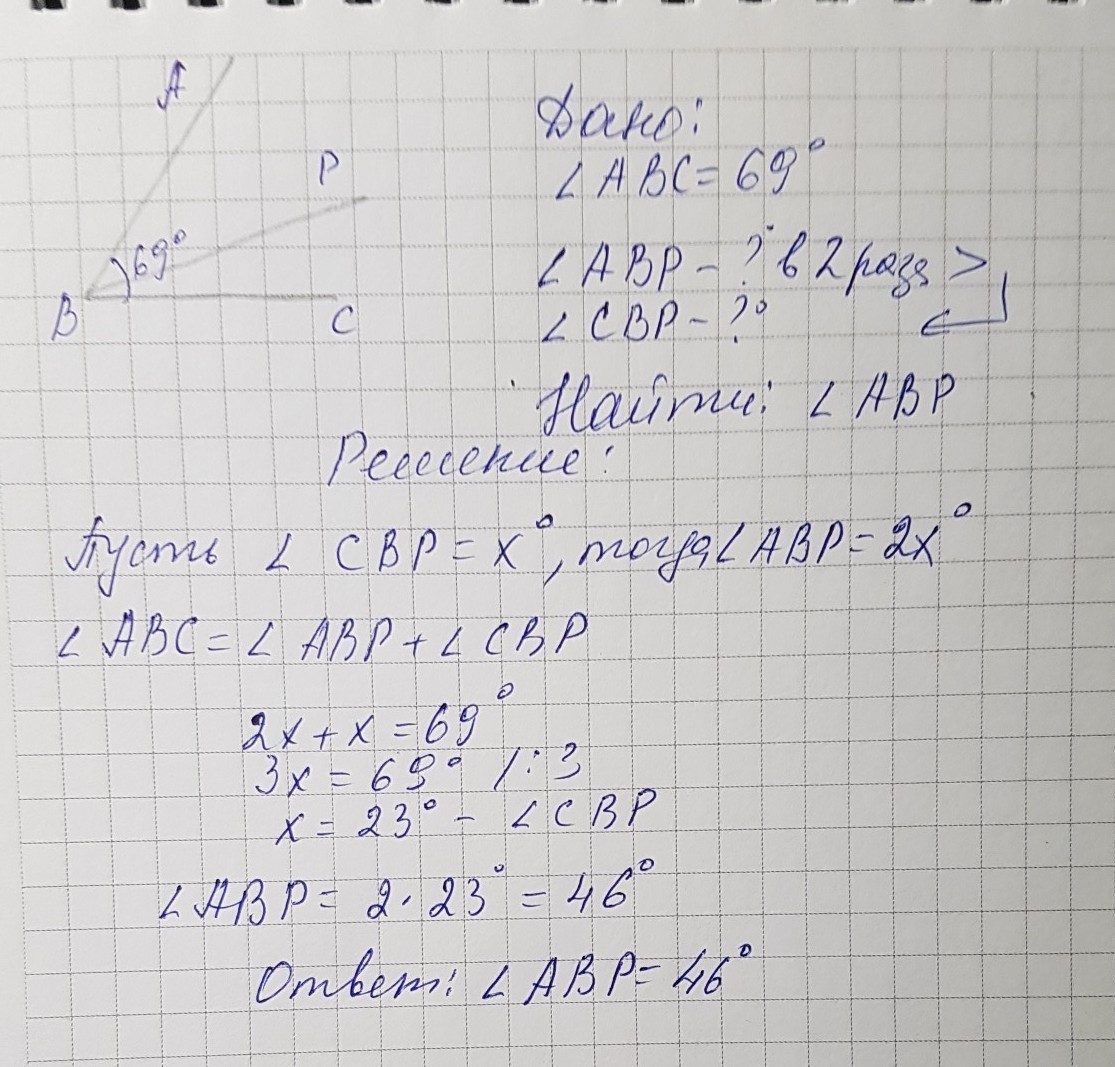 A
P
69°
B
C
Дано:
∠ABC = 69°
∠ABP - ? в 2 раза >
∠CBP - ?°
Найти: ∠ABP
Решение:
Пусть ∠CBP = x°, тогда ∠ABP = 2x°
∠ABC = ∠ABP + ∠CBP
2x + x = 69°
3x = 69° /: 3
x = 23° - ∠CBP
∠ABP = 2 · 23° = 46°
Ответ: ∠ABP = 46°